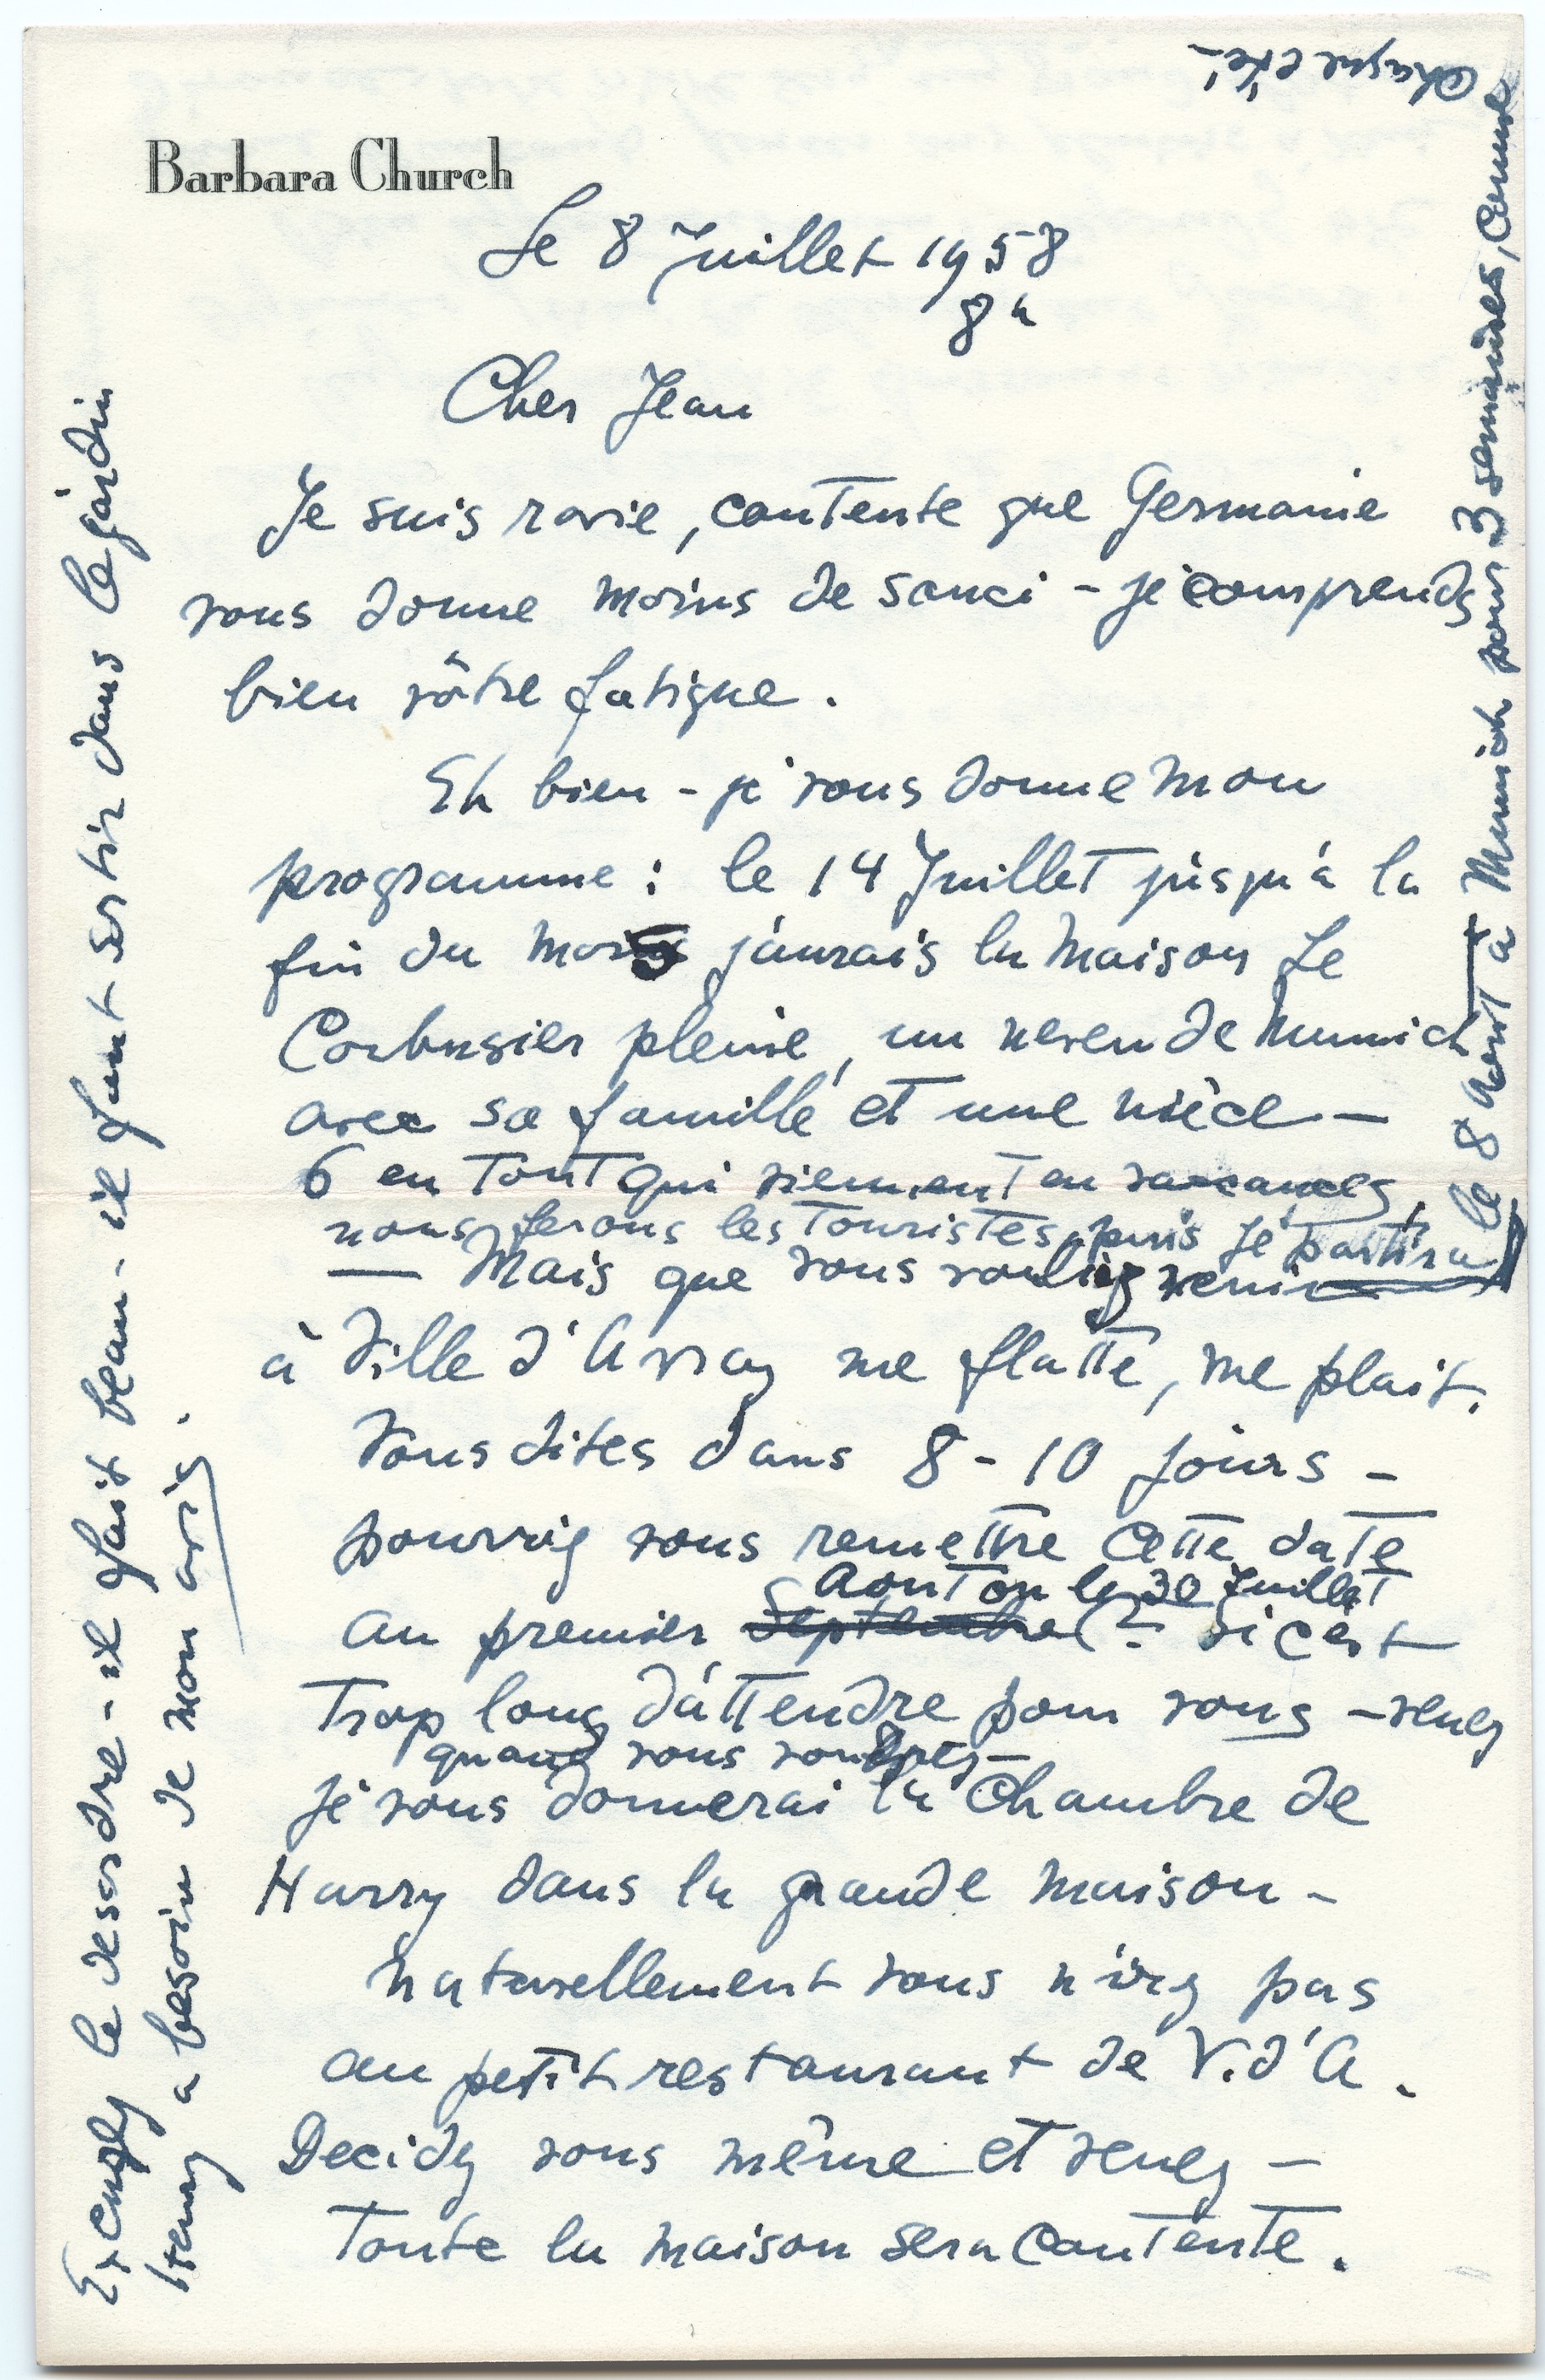 Barbara Church
Le 8 Juillet 1958
8h
Cher Jean
Je suis ravie, contente que Germaine
vous donne moins de souci - je comprends
bien vôtre fatigue.
Eh bien - je vous donne mon
programme : le 14 Juillet jusqu'à la
fin du mois j'aurais la maison Le
Corbusier pleine, un neveu de Munich
avec sa famille et une nièce —
6 en tout qui viennent en vacances,
nous ferons les touristes, puis je partirai
le 8 Août à Munich pour 3 semaines, comme
chaque été. -
— Mais que vous vouliez venir
à Ville d'Avray me flatte, me plait.
Vous dites dans 8 - 10 jours -
pourriez vous remettre cette date
Août ou le 30 Juillet
au premier Septembre (? Si c'est
trop long d'attendre pour vous - venez
quand vous voudrez -
je vous donnerai la Chambre de
Harry dans la grande maison -
naturellement vous n'irez pas
au petit restaurant de V. d'A.
Decidez vous même et venez -
Toute la maison sera contente.
Excusez le desordre - il fait beau - il faut sortir dans le jardin
Henry a besoin de mon avis.